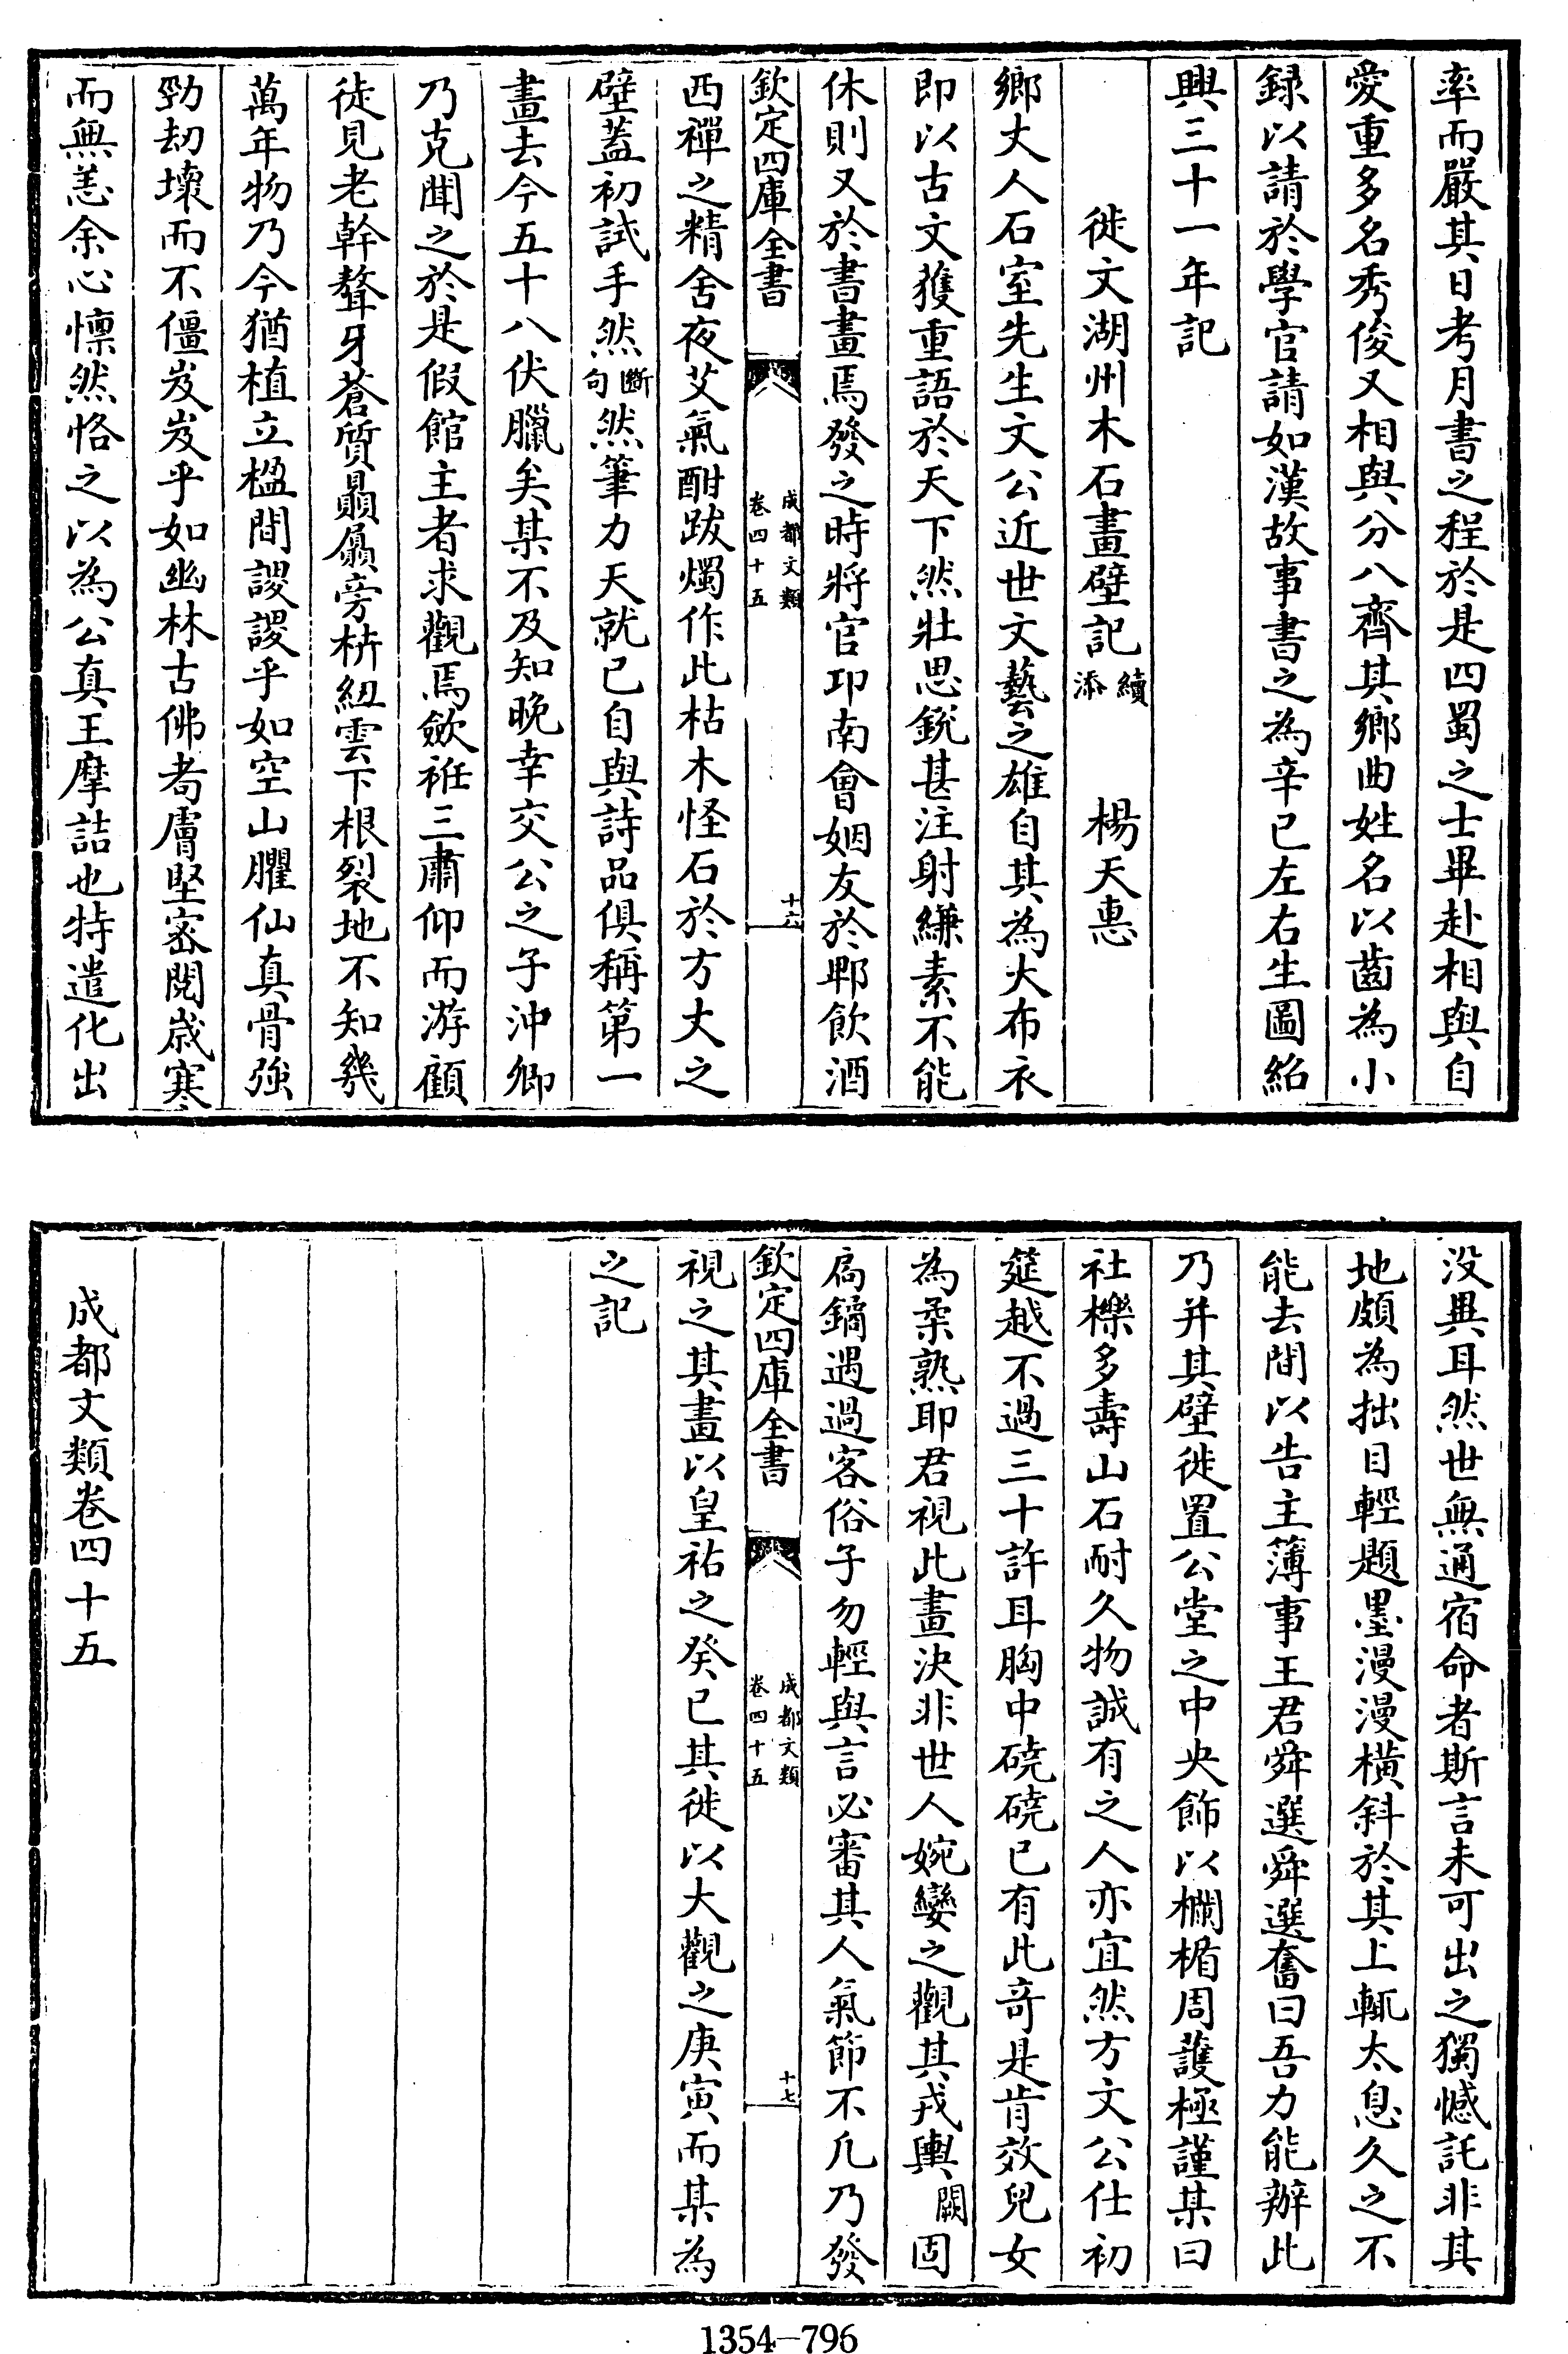 率而嚴其日考月書之程於是四蜀之士畢赴相與自
愛重多名秀俊又相與分八齊其鄉曲姓名以齒為小
録以請於學官請如漢故事書之為辛已左右生圖紹
興三十一年記
徙文湖州木石畫壁記續添 楊天惠
鄉丈人石室先生文公近世文藝之雄自其為火布衣
即以古文獲重語於天下然壯思鋭甚注射縑素不能
休則又於書畫焉發之時將官卭南會姻友於郫飲酒
欽定四庫全書
成都文類
卷四十五
十六
西禪之精舍夜艾氣酣跋燭作此枯木怪石於方丈之
壁蓋初試手然斷句然筆力天就已自與詩品俱稱第一
畫去今五十八伏臘矣某不及知晚幸交公之子沖卿
乃克聞之於是假館主者求觀焉斂袵三肅仰而游顧
徒見老幹聱牙蒼質贔屭旁枿紐雲下根裂地不知幾
萬年物乃今猶植立楹間謖謖乎如空山臞仙真骨強
勁劫壞而不僵岌岌乎如幽林古佛耈膚堅密閱歳寒
而無恙余心懍然恪之以為公真王摩詰也特遣化出
没異耳然世無通宿命者斯言未可出之獨憾託非其
地頗為拙目輕題墨漫漫橫斜於其上輒太息久之不
能去間以告主簿事王君舜選舜選奮曰吾力能辦此
乃并其壁徙置公堂之中央飾以欄楯周護極謹某曰
社櫟多壽山石耐久物誠有之人亦宜然方文公仕初
筵越不過三十許耳胸中磽磽已有此奇是肯效兒女
為柔熟耶君視此畫決非世人婉孌之觀其戎輿闕固
扃鐍遇過客俗子勿輕與言必審其人氣節不凡乃發
欽定四庫全書
成都文類
卷四十五
十七
視之其畫以皇祐之癸已其徙以大觀之庚寅而某為
之記
成都文類卷四十五
1354—796